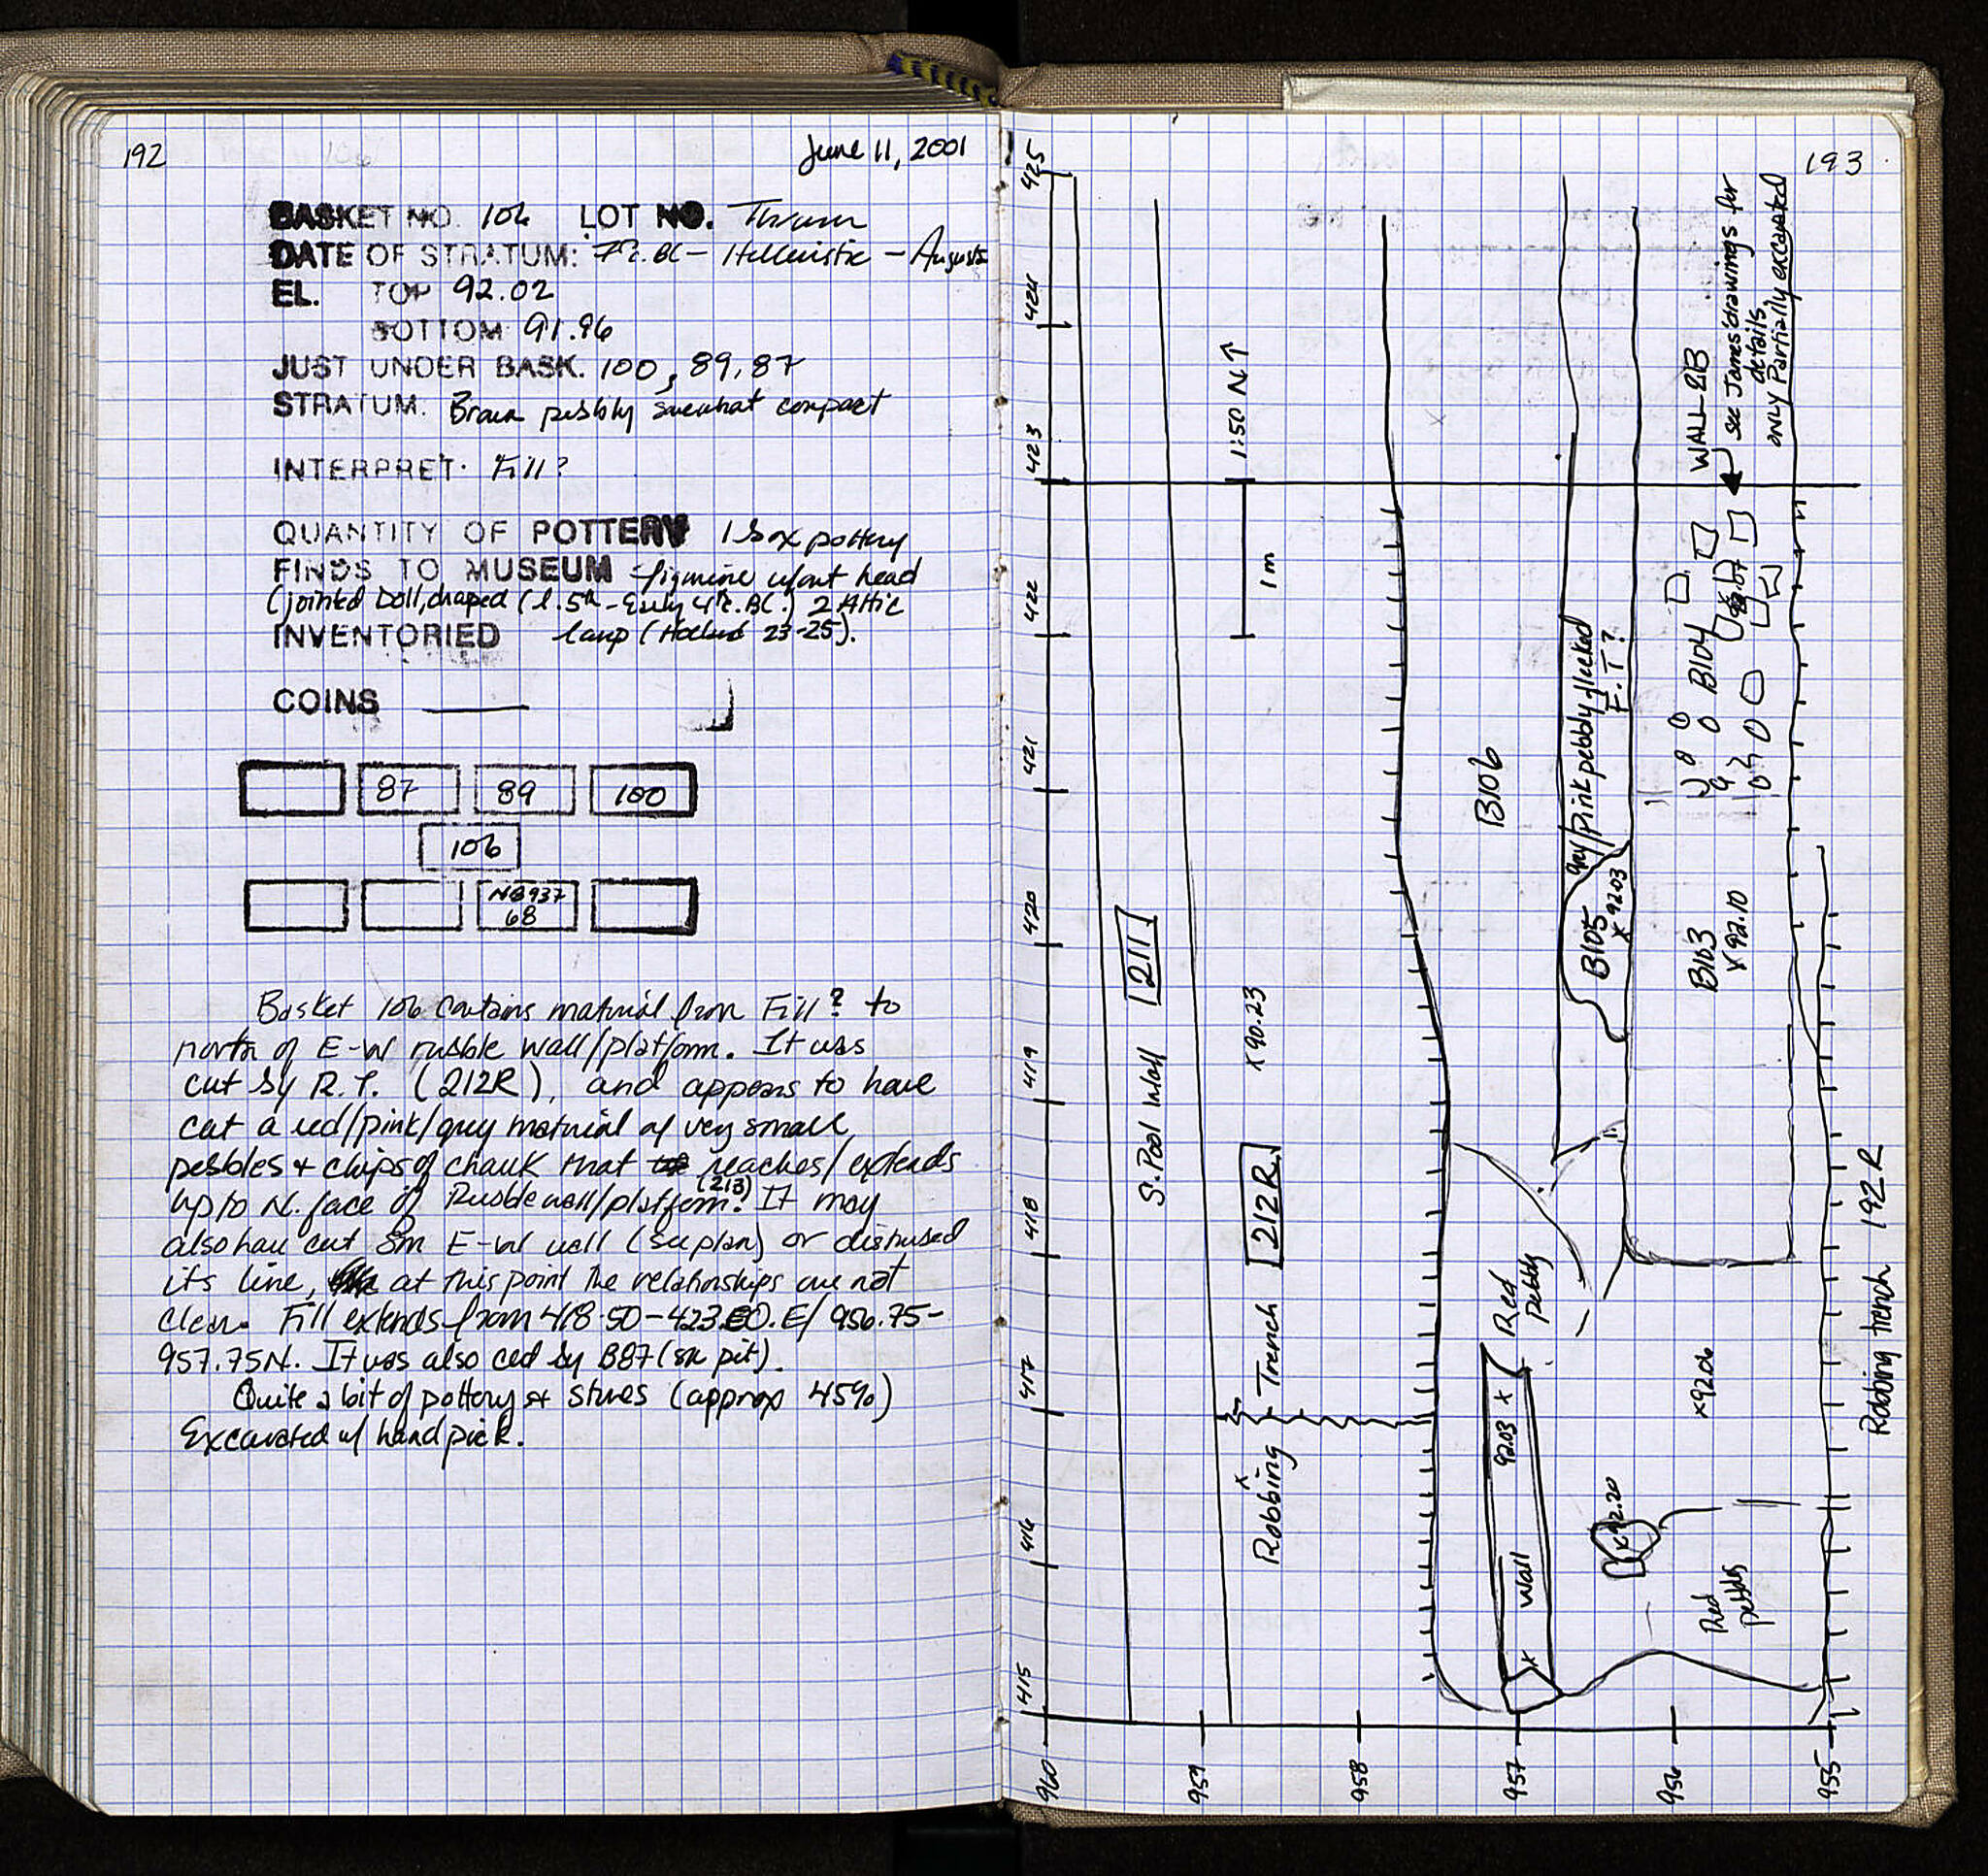 192
June 11, 2001
BASKET NO. 106 LOT NO. Thrown
DATE OF STRATUM: BC – Hellenistic –
EL. TOP 92.02
BOTTOM 91.96
JUST UNDER BASK. 100, 89, 87
STRATUM. Brown pebbly somewhat compact
INTERPRET. Fill?
QUANTITY OF POTTERY 1 box pottery
FINDS TO MUSEUM figurine w/out head
(jointed Doll, draped (l. 5th - Early 4th c. BC.) 2 Attic
INVENTORIED lamp (Howland 23-25).
COINS
87 89 100
106
NB937
68
Basket 106 contains material from Fill? to
north of E-W rubble wall/platform. It was
cut by R.T. (212R), and appears to have
cut a red/pink/grey material of very small
pebbles + chips of chalk that reaches/extends
up to N. face of Rubble wall/platform. (213) It may
also have cut sm E-W wall (see plan) or disturbed
its line, at this point the relationships are not
clear. Fill extends from 418.50-423.00.E/ 956.75-
957.75N. It was also cut by B87 (sm pit).
Quite a bit of pottery + stones (approx 45%)
Excavated w/ hand pick.
193
425
424
423
422
421
420
419
418
417
416
415
960
959
958
957
956
955
1:50 N↑
1m
S. Pool Wall
211
x 90.23
Robbing Trench
212R
B106
grey/pink pebbly flecked
F.T?
B105
x 92.03
B104
B103
x 92.10
WALL 213
see James' drawings for
details
only Partially excavated
Red
pebbly
92.03 x
Wall
x
x 92.06
92.20
Red
pebbly
Robbing trench 192R